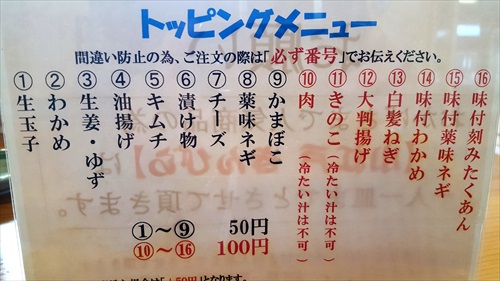 トッピングメニュー
間違い防止の為、ご注文の際は「必ず番号」でお伝えください。
①生玉子
②わかめ
③生姜・ゆず
④油揚げ
⑤キムチ
⑥漬け物
⑦チーズ
⑧薬味ネギ
⑨かまぼこ
⑩肉(冷たい汁は不可)
⑪きのこ(冷たい汁は不可)
⑫大判揚げ
⑬白髪ねぎ
⑭味付わかめ
⑮味付薬味ネギ
⑯味付刻みたくあん
①～⑨ 50円
⑩～⑯ 100円
は「+50円」となります。